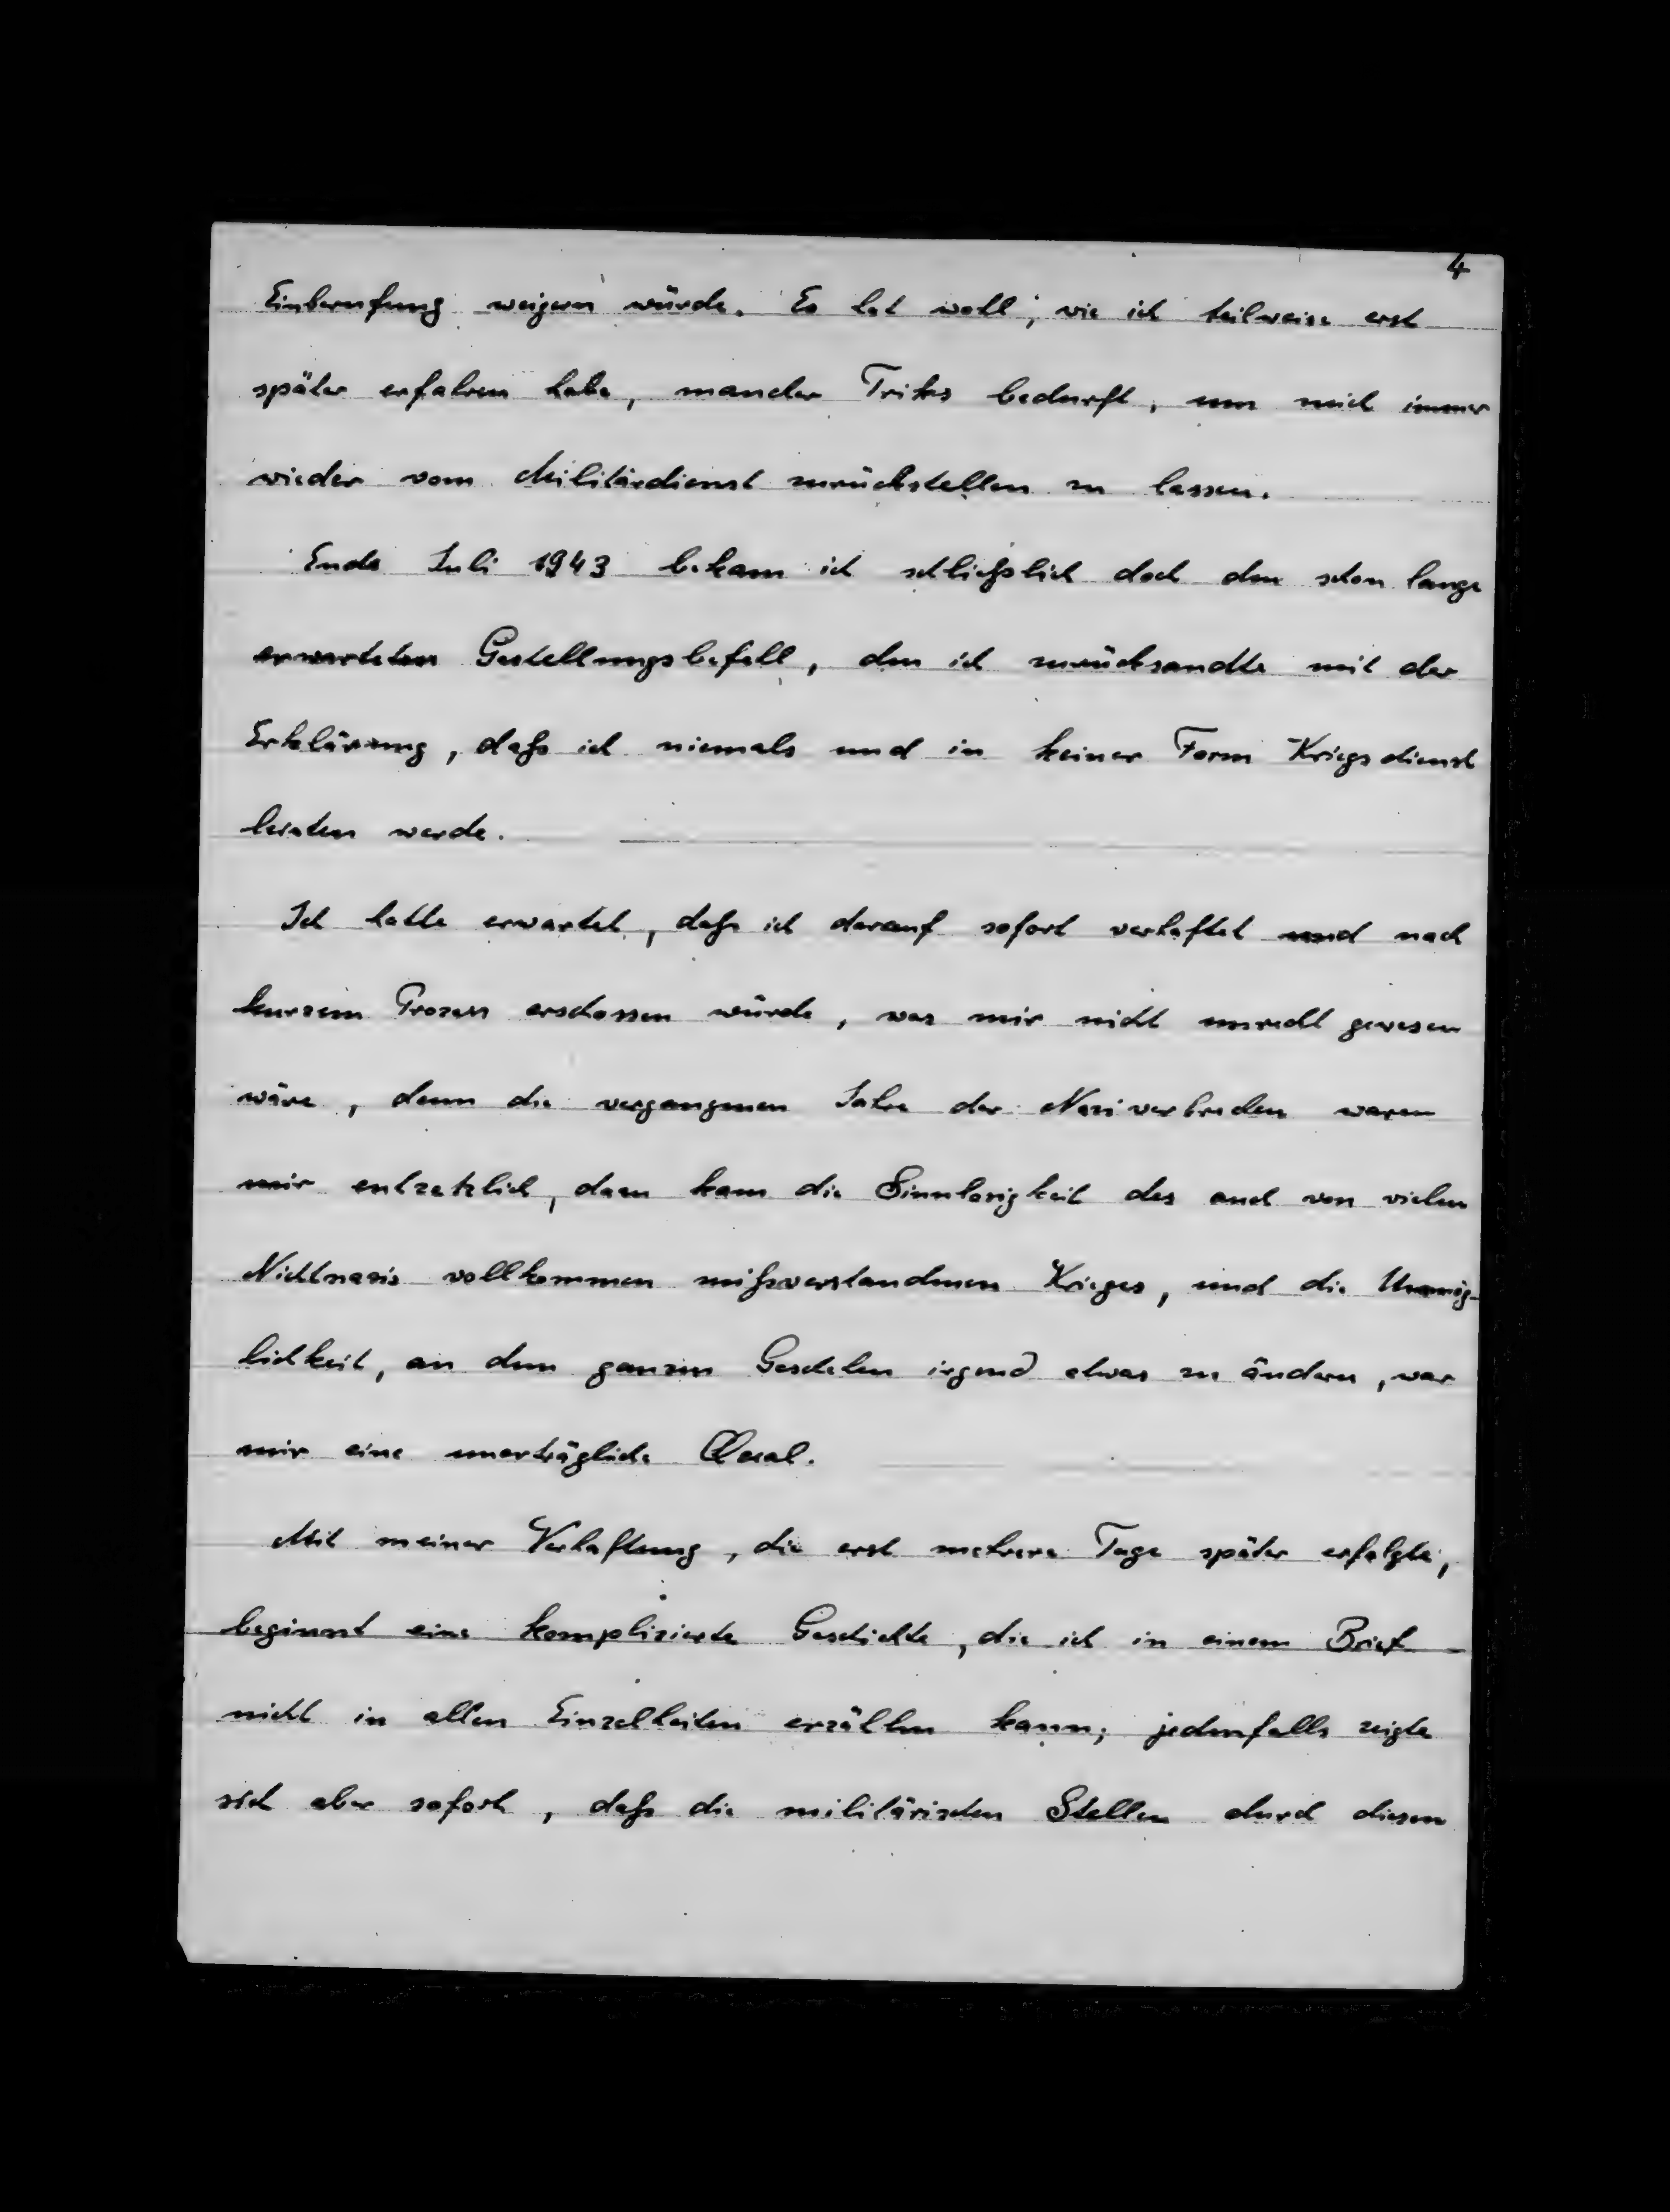 4
Einberufung weigern würde. Es hat wohl, wie ich teilweise erst
später erfahren habe, mancher Triks bedurft, um mich immer
wieder vom Militärdienst zurückstellen zu lassen.
Ende Juli 1943 bekam ich schließlich doch den schon lange
erwarteten Gestellungsbefehl, den ich zurücksandte mit der
Erklärung, daß ich niemals und in keiner Form Kriegsdienst
leisten werde.
Ich hatte erwartet, daß ich darauf sofort verhaftet und nach
kurzem Prozess erschossen würde, was mir nicht unrecht gewesen
wäre, denn die vergangenen Jahre der Naziverbrechen waren
mir entsetzlich, dazu kam die Sinnlosigkeit des auch von vielen
Nichtnazis vollkommen mißverstandenen Krieges, und die Unmög-
lichkeit, an dem ganzen Geschehen irgend etwas zu ändern, war
mir eine unerträgliche Qual.
Mit meiner Verhaftung, die erst mehrere Tage später erfolgte,
beginnt eine komplizierte Geschichte, die ich in einem Brief
nicht in allen Einzelheiten erzählen kann; jedenfalls zeigte
sich aber sofort, daß die militärischen Stellen durch diesen